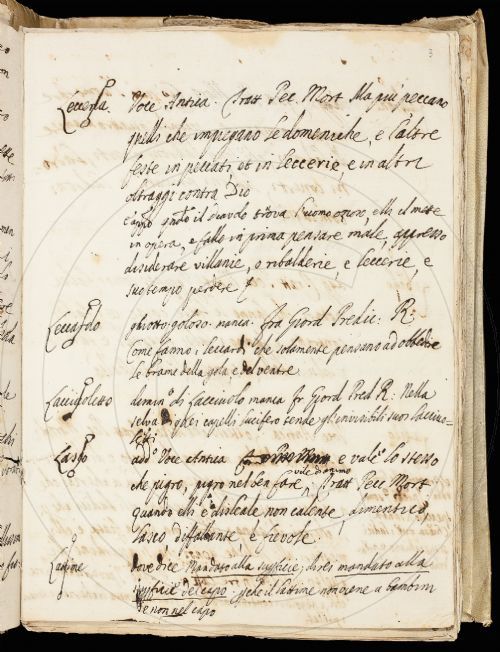 3
Leccerìa. Voce Antica. Tratt Pec. Mort. Ma più peccano
quelli che impiegano le domeniche, e l'altre
feste in peccati, et in leccerie, e in altri
oltraggi contra Dio
e app.o quando il diavolo truova l'uomo ozioso, elli il mette
in opera, e fallo in prima pensare male, appresso
disiderare villanie, o ribalderie, e leccerie, e
suo tempo perdere
Leccardo ghiotto. goloso. manca. fra Giord Predic: R:
Come fanno i leccardi che solamente pensano ad obbedire
le brame della gola, e del ventre
Lacciuoletto dimin.o di lacciuolo manca fr Giord Pred R. Nella
selva di ghei capelli Lucifero tende gl'invisibili suoi lacciuo=
letti
Lasco add. Voce Antica e vale lo stesso
che pigro, pigro nel ben fare, vile d'animo Tratt Pecc Mort.
quando elli è disleale non calente, dimentico,
lasco diffallante e fievole
Lattime dove dice mandato alla superficie; direi mandato alla
superficie del capo. che il lattime non viene a bambini
se non nel capo